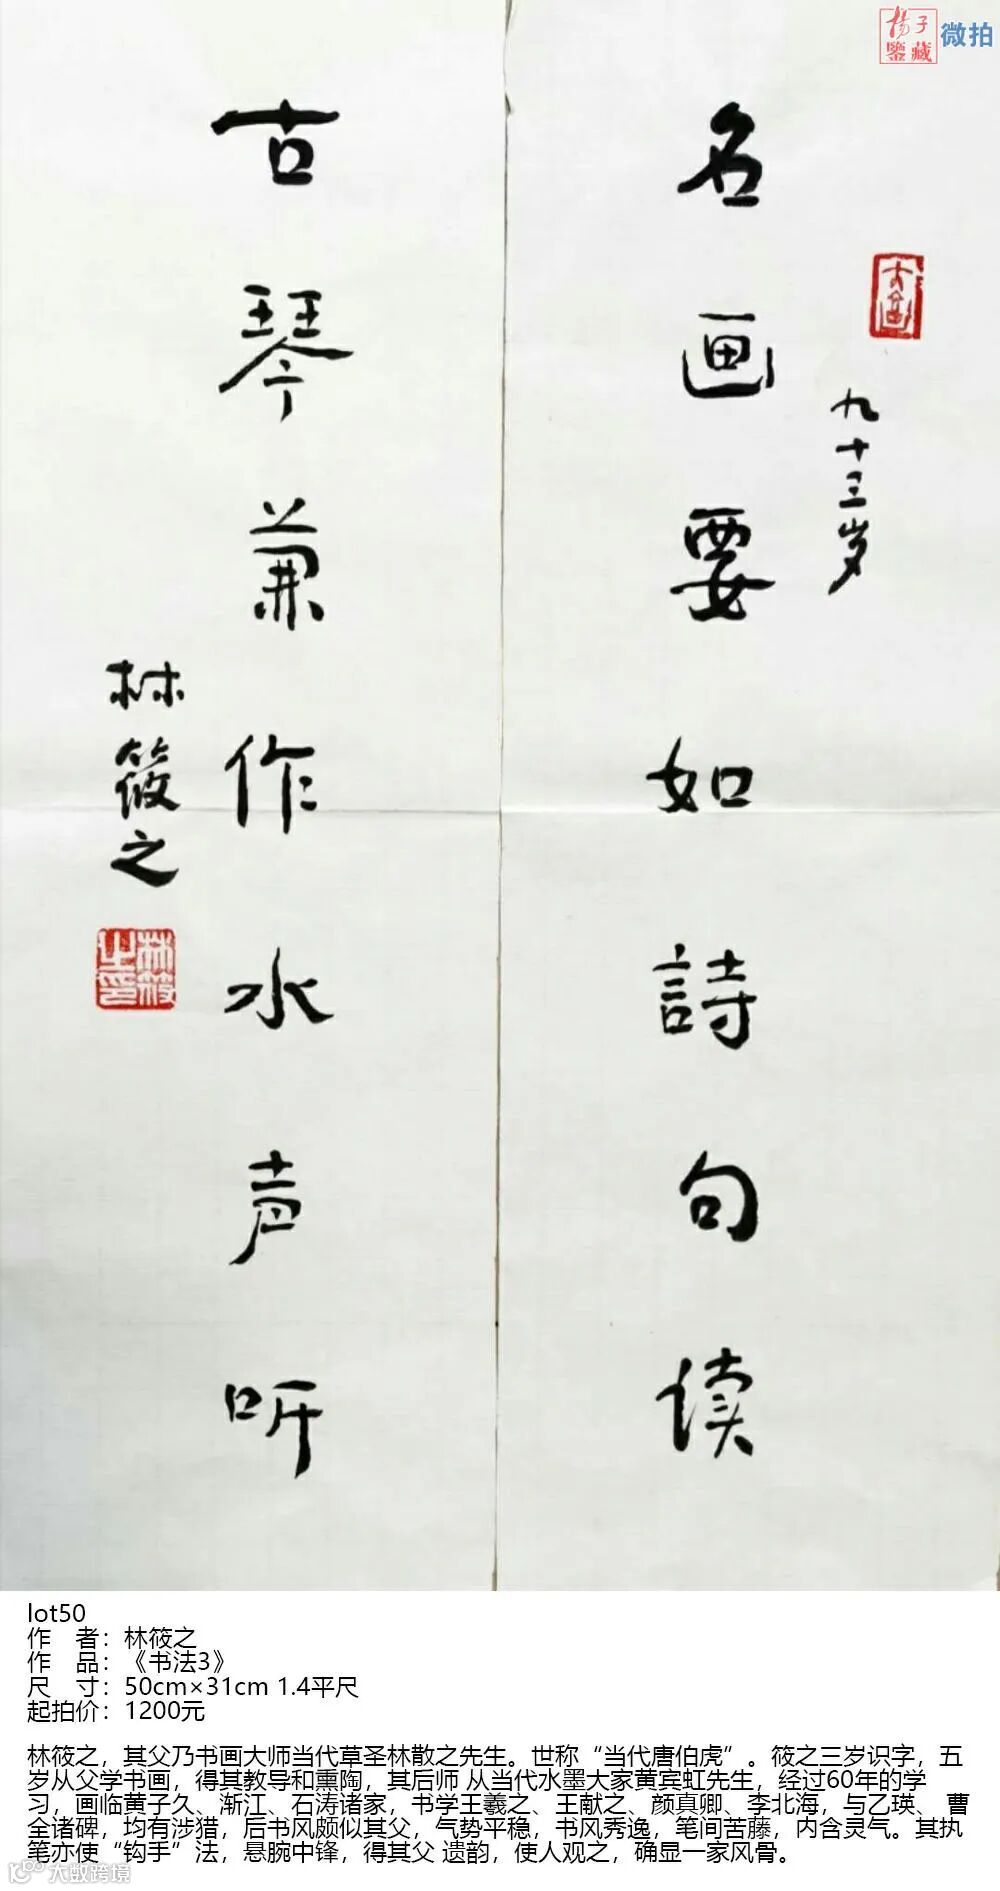 杨子
鉴藏
微拍
名画要如詩句读
九十三岁
古琴兼作水声听
林筱之
林筱之印
lot50
作 者：林筱之
作 品：《书法3》
尺 寸：50cm×31cm 1.4平尺
起拍价：1200元
林筱之，其父乃书画大师当代草圣林散之先生。世称“当代唐伯虎”。筱之三岁识字，五
岁从父学书画，得其教导和熏陶，其后师 从当代水墨大家黄宾虹先生，经过60年的学
习，画临黄子久、渐江、石涛诸家，书学王羲之、王献之、颜真卿、李北海，与乙瑛、 曹
全诸碑，均有涉猎，后书风颇似其父，气势平稳，书风秀逸，笔间苦藤，内含灵气。其执
笔亦使“钩手”法，悬腕中锋，得其父 遗韵，使人观之，确显一家风骨。
大数跨境